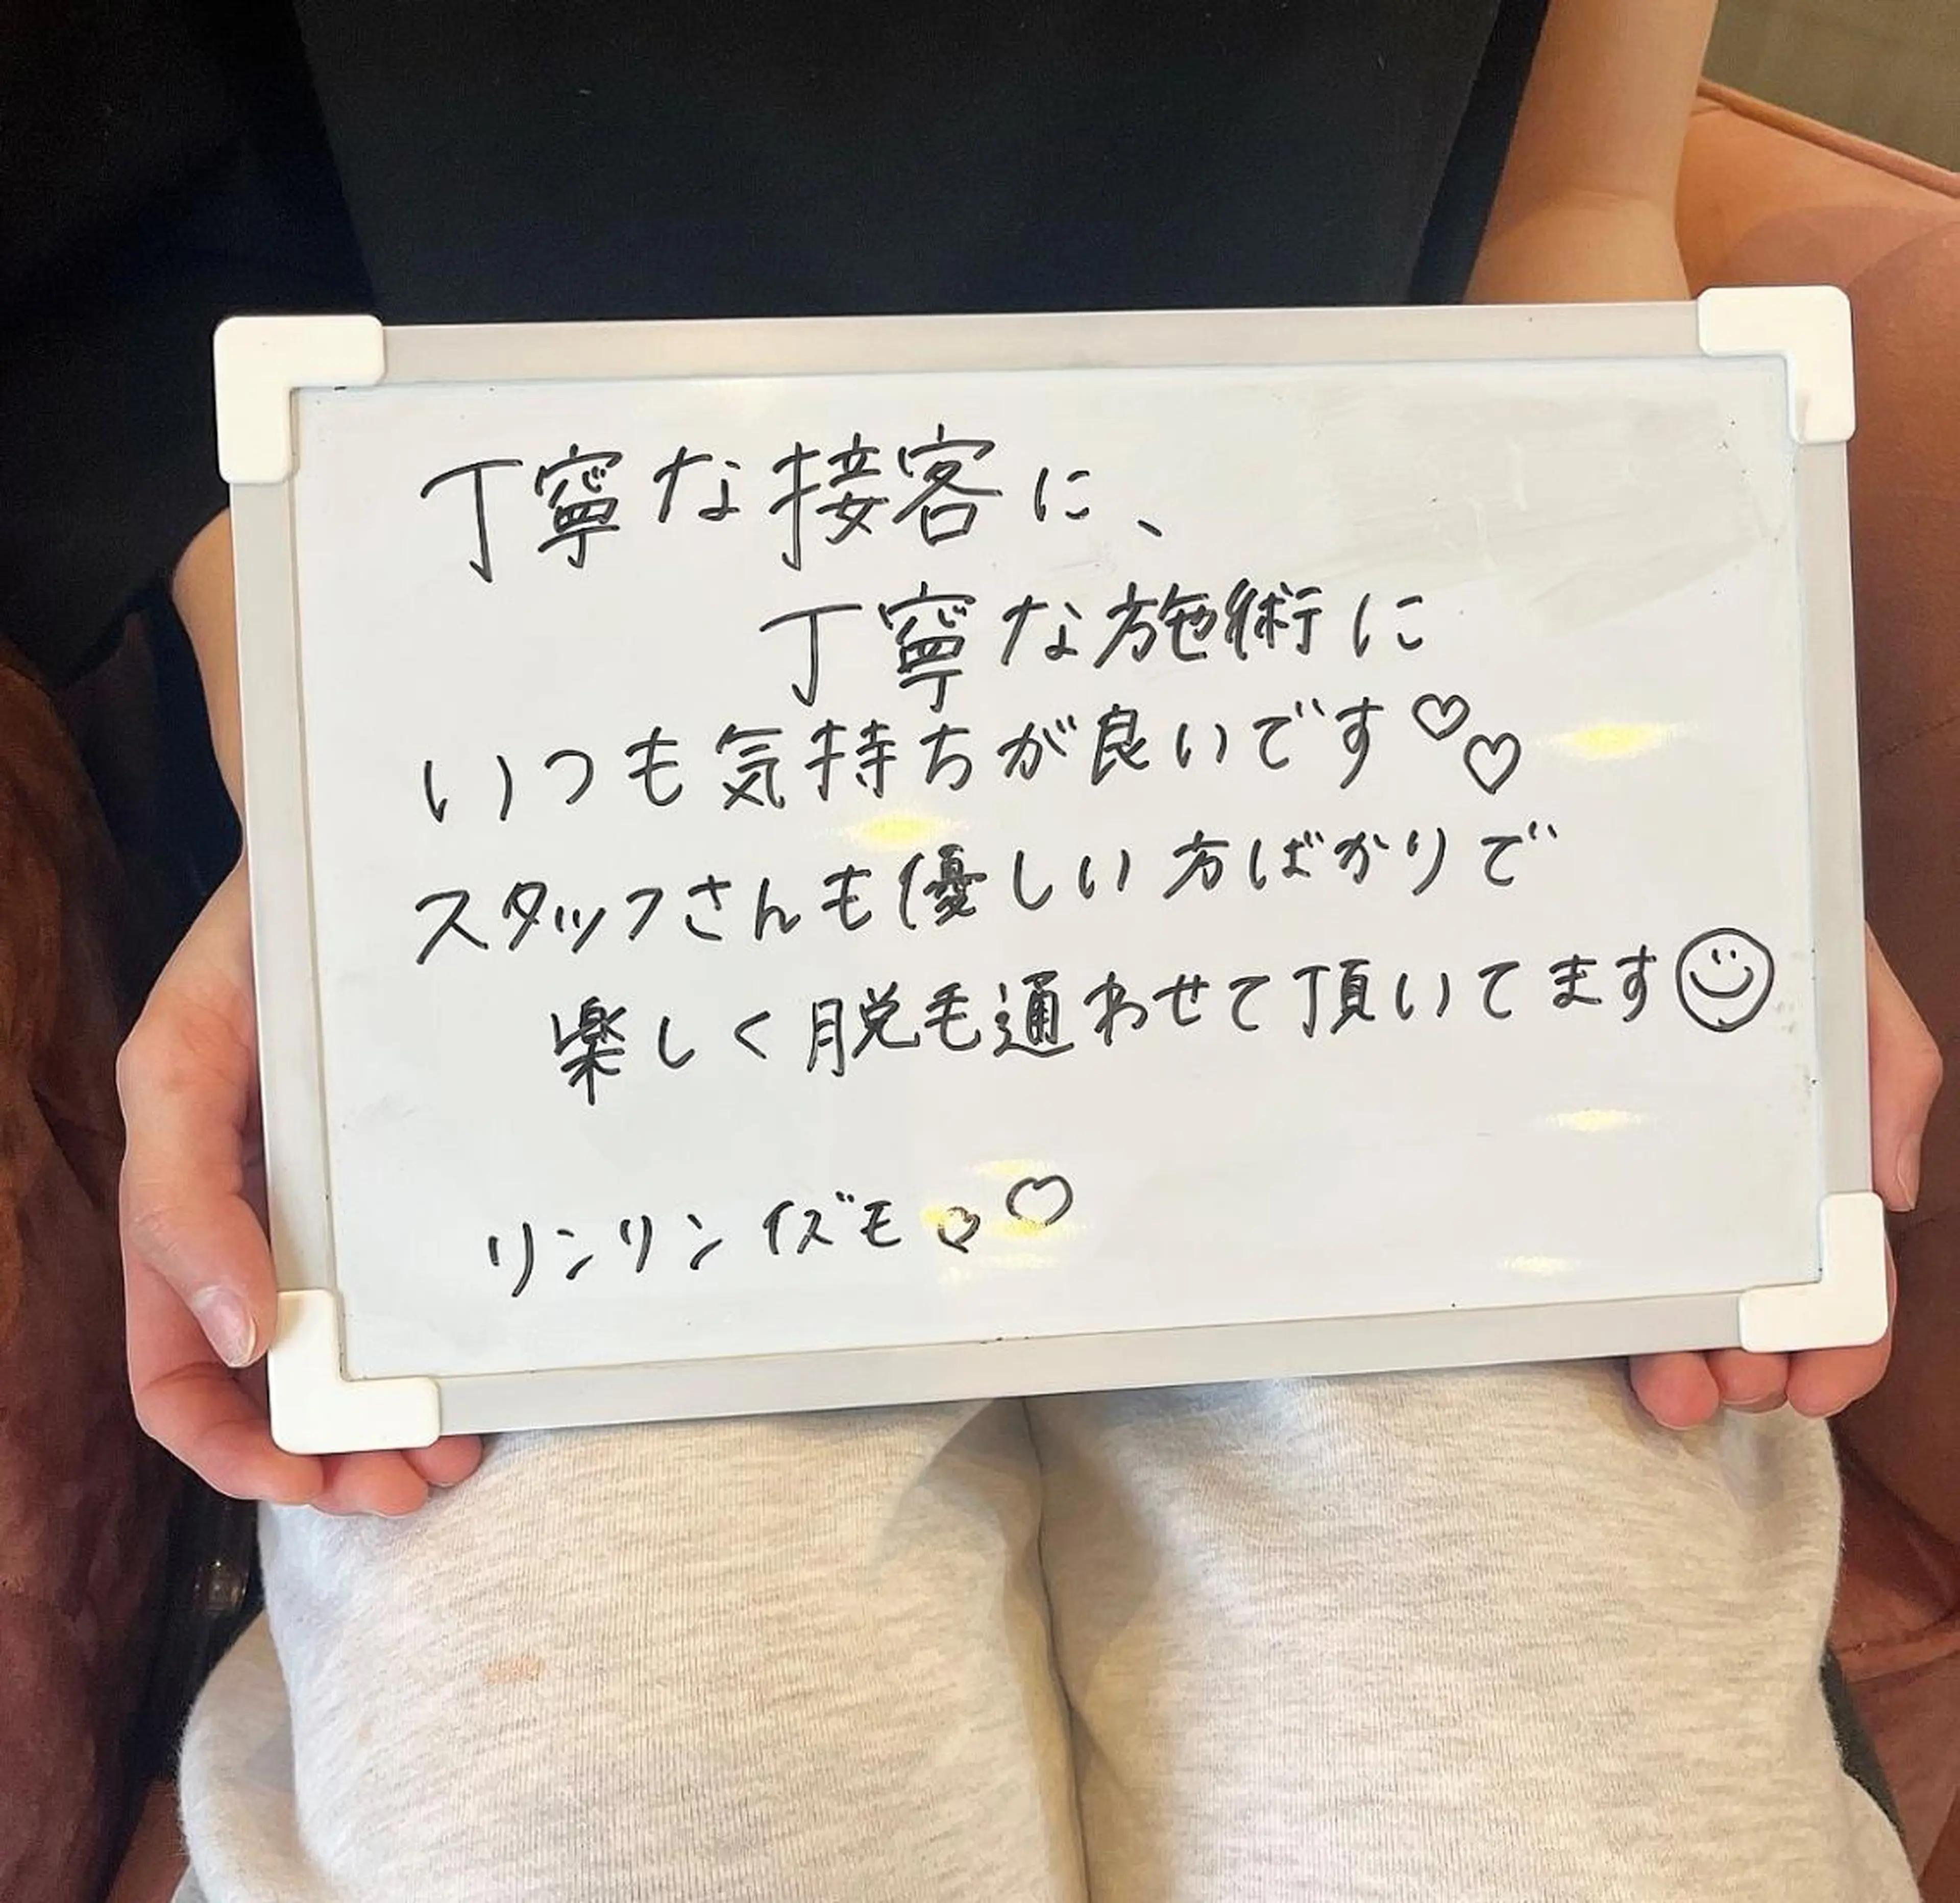 丁寧な接客に、
丁寧な施術に
いつも気持ちが良いです♡♡
スタッフさんも優しい方ばかりで
楽しく脱毛通わせて頂いてます☺
リンリンイズモ♡♡